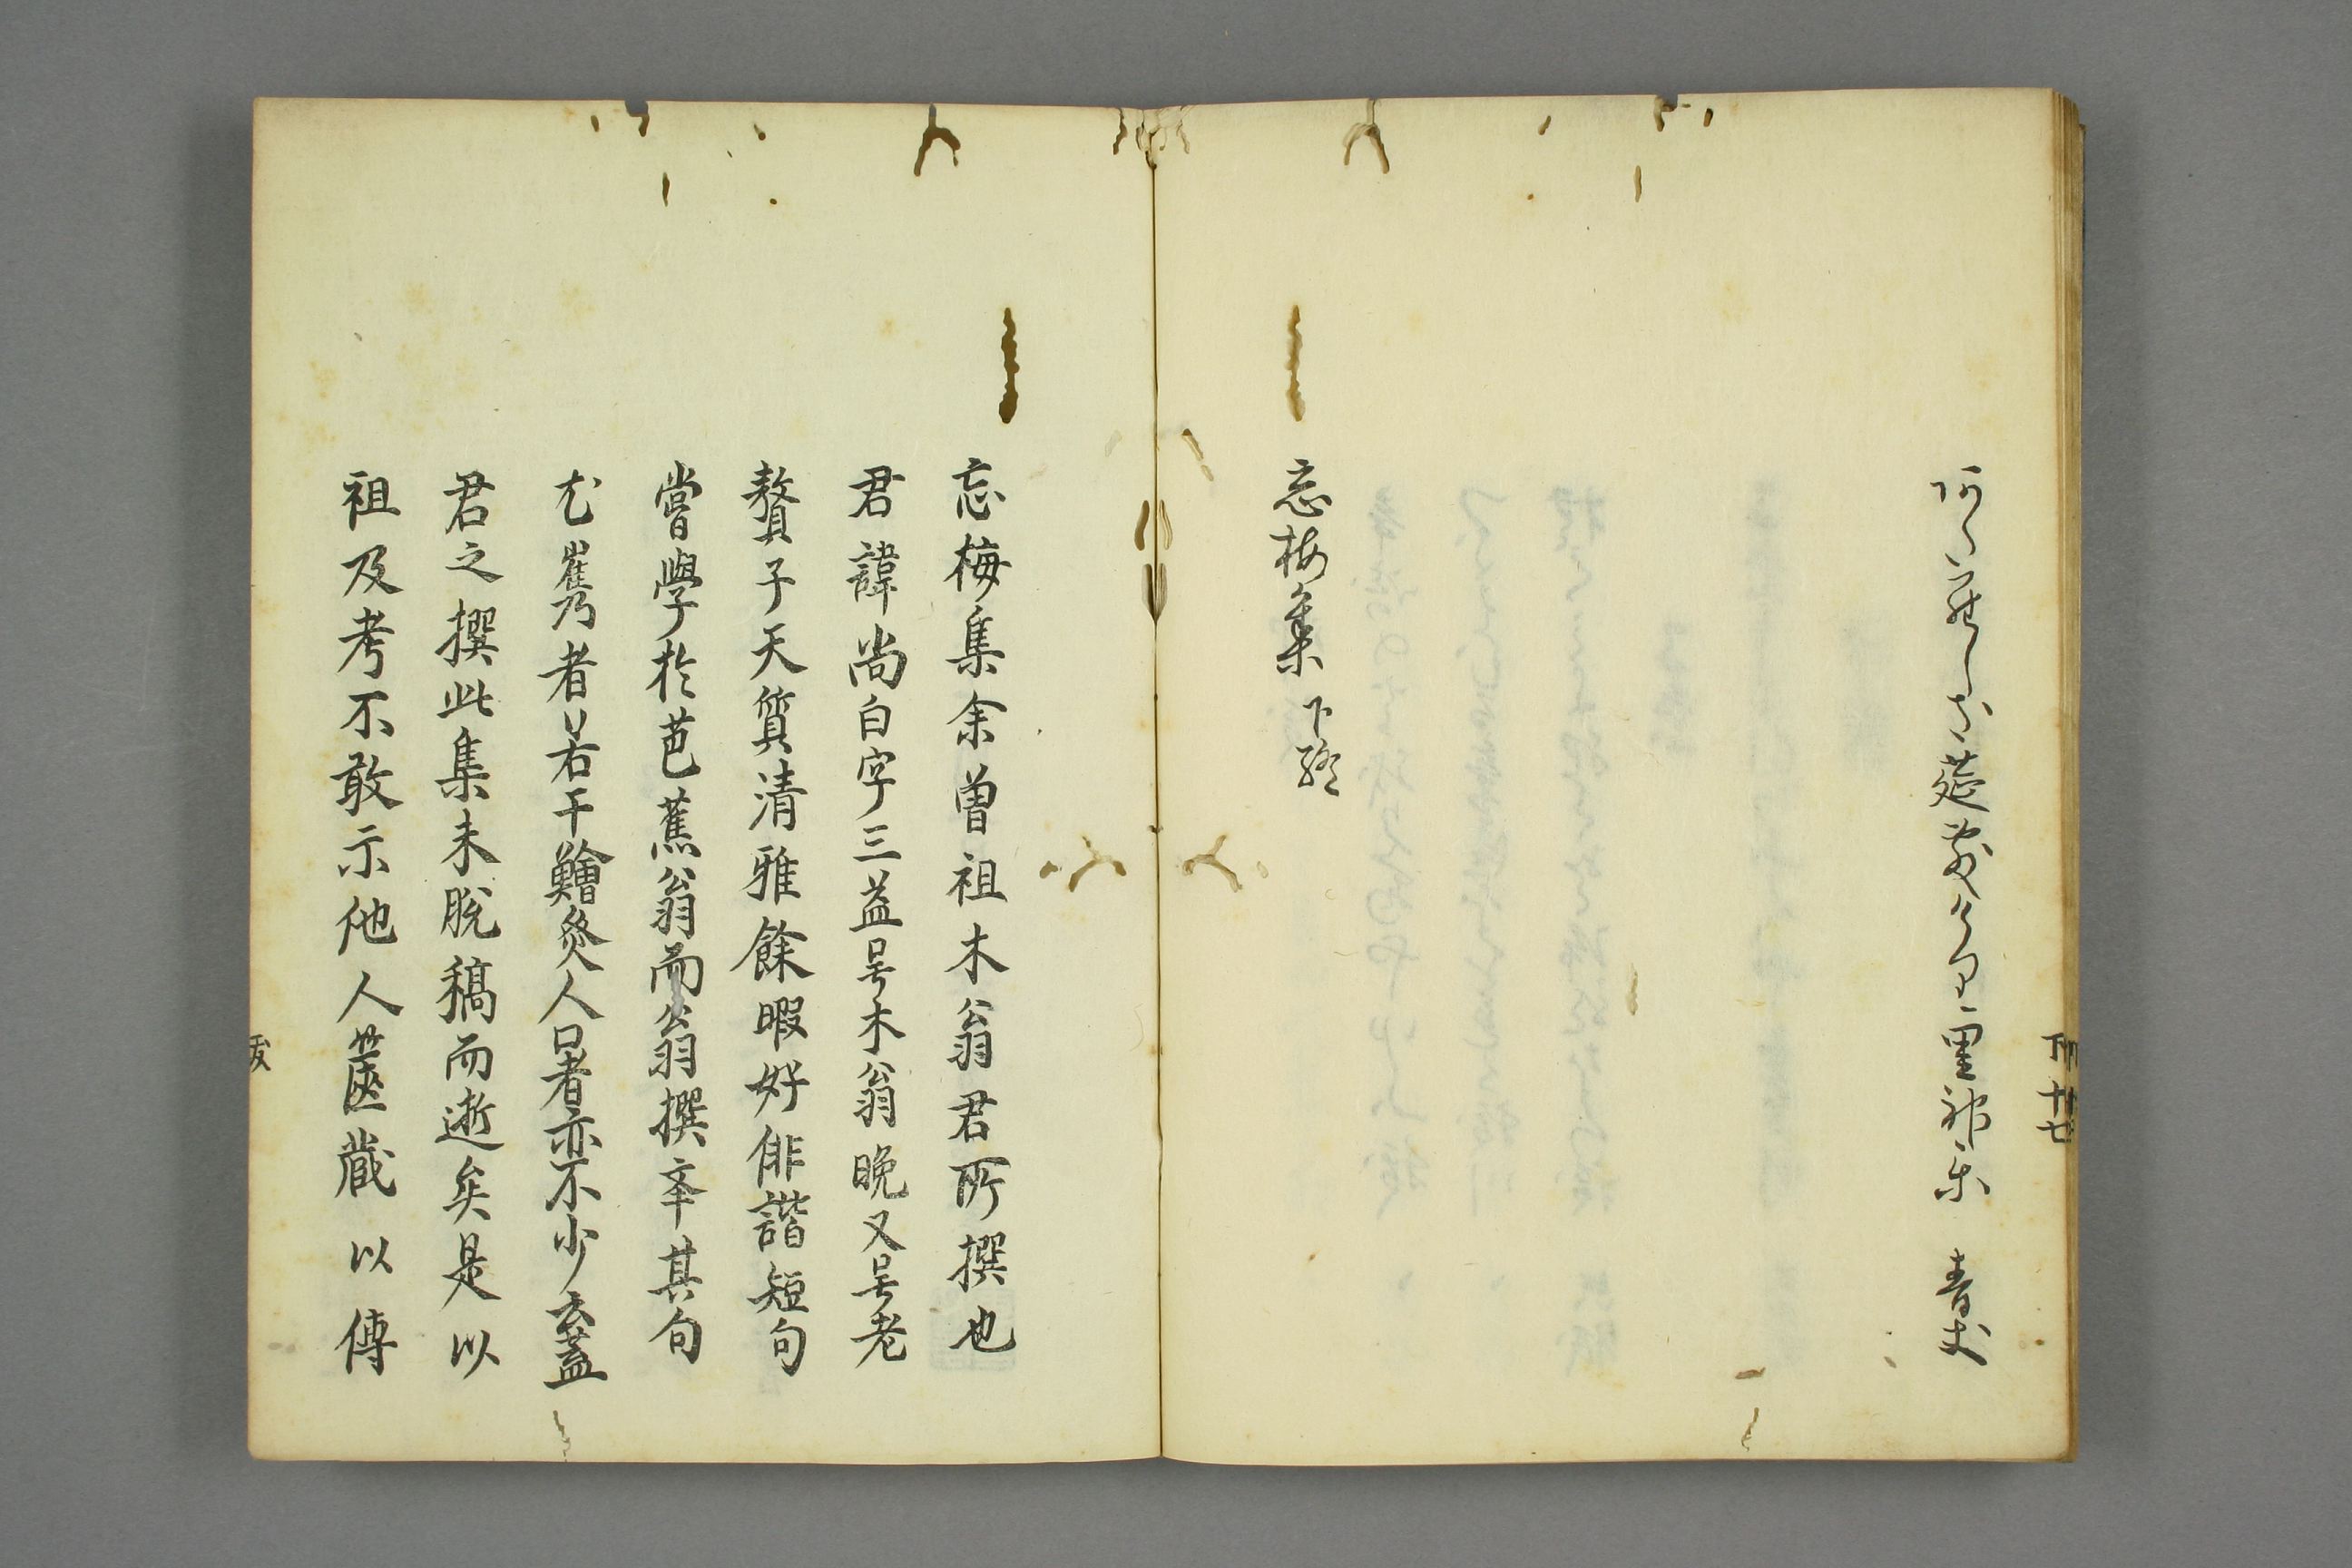 里神楽 青丈
下 十七
忘梅集 下終
忘梅集余曽祖木翁君所撰也
君諱尚白字三益号木翁晩又号老
贅子天質清雅餘暇好俳諧短句
嘗學於芭蕉翁而翁撰卒其句
尤雋者若干鱠炙人口者亦不少蓋
君之撰此集未脱稿而逝矣是以
祖及考不敢示他人篋藏以傳
跋